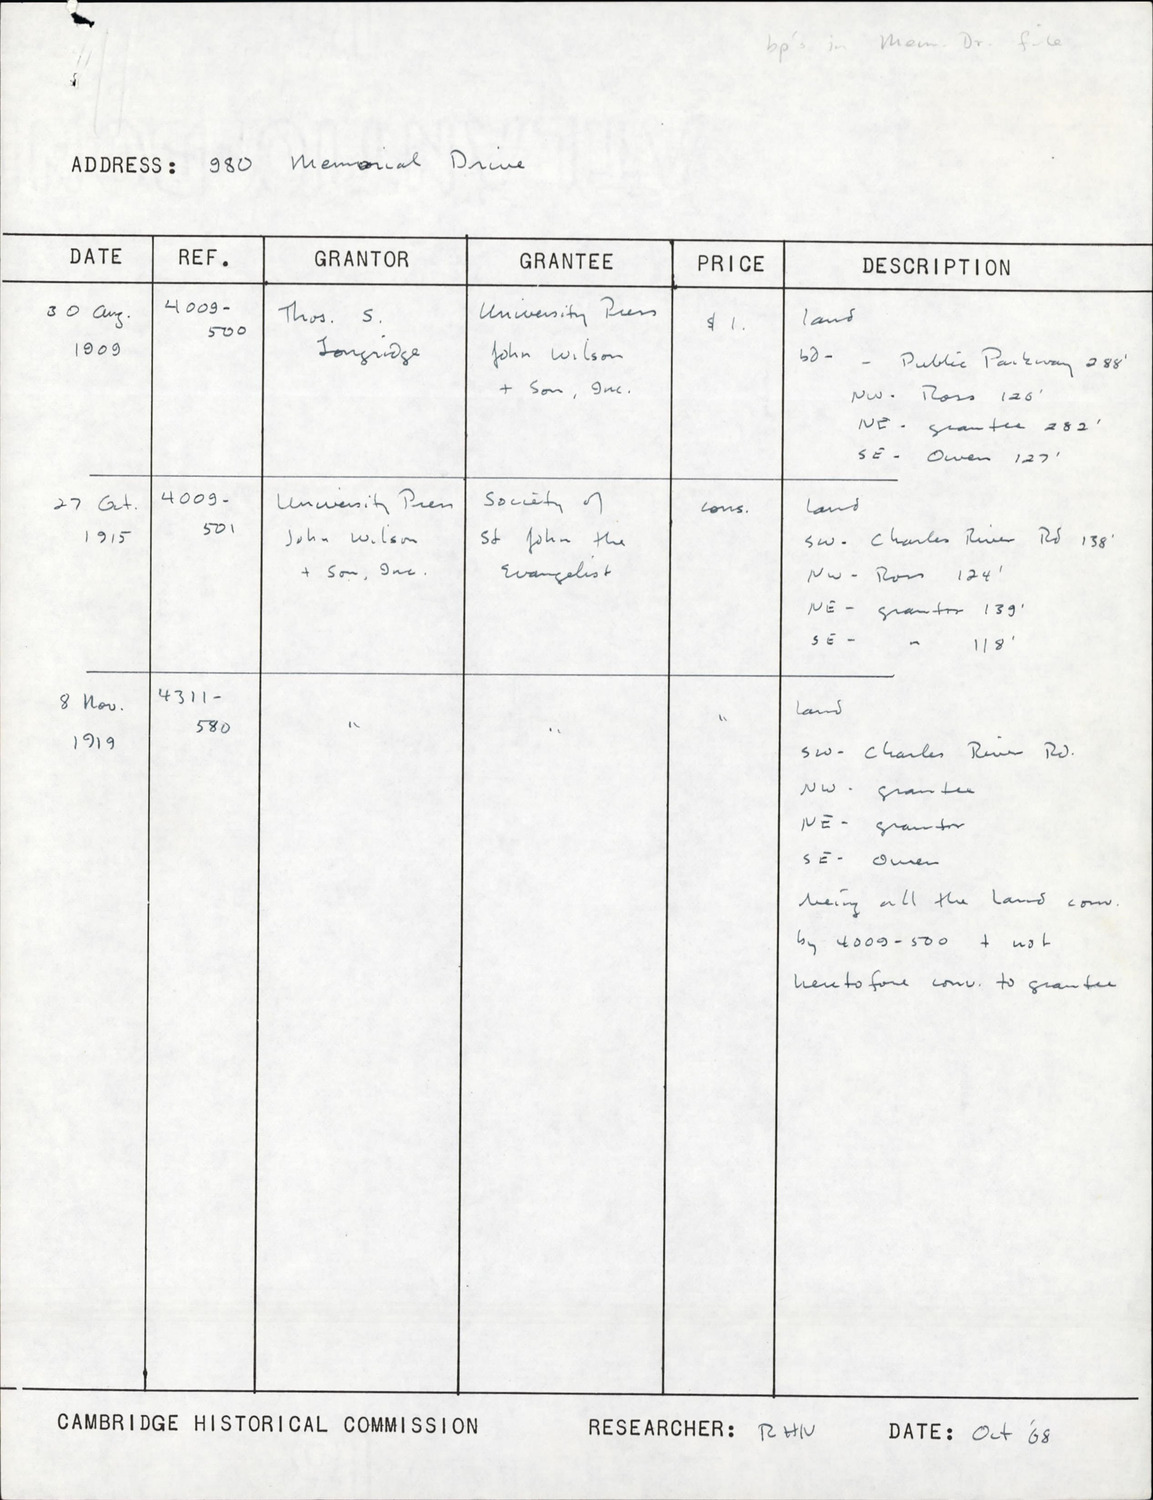 bp's in Mem. Dr. file
ADDRESS: 980 Memorial Drive
DATE REF. GRANTOR GRANTEE PRICE DESCRIPTION
30 Aug. 1909
4009-500
Thos. S. Longridge
University Press
John Wilson
+ Son, Inc.
$1.
land
bd- - Public Parkway 288'
NW- Ross 126'
NE- grantee 282'
SE- Owen 127'
27 Oct. 1915
4009-501
University Press
John Wilson
+ Son, Inc.
Society of
St John the
Evangelist
cons.
land
SW- Charles River Rd 138'
NW- Ross 124'
NE- grantor 139'
SE- " 118'
8 Nov. 1919
4311-580
"
"
"
land
SW- Charles River Rd.
NW- grantee
NE- grantor
SE- Owen
being all the land conv.
by 4009-500 + not
heretofore conv. to grantee
CAMBRIDGE HISTORICAL COMMISSION RESEARCHER: RHN DATE: Oct '68